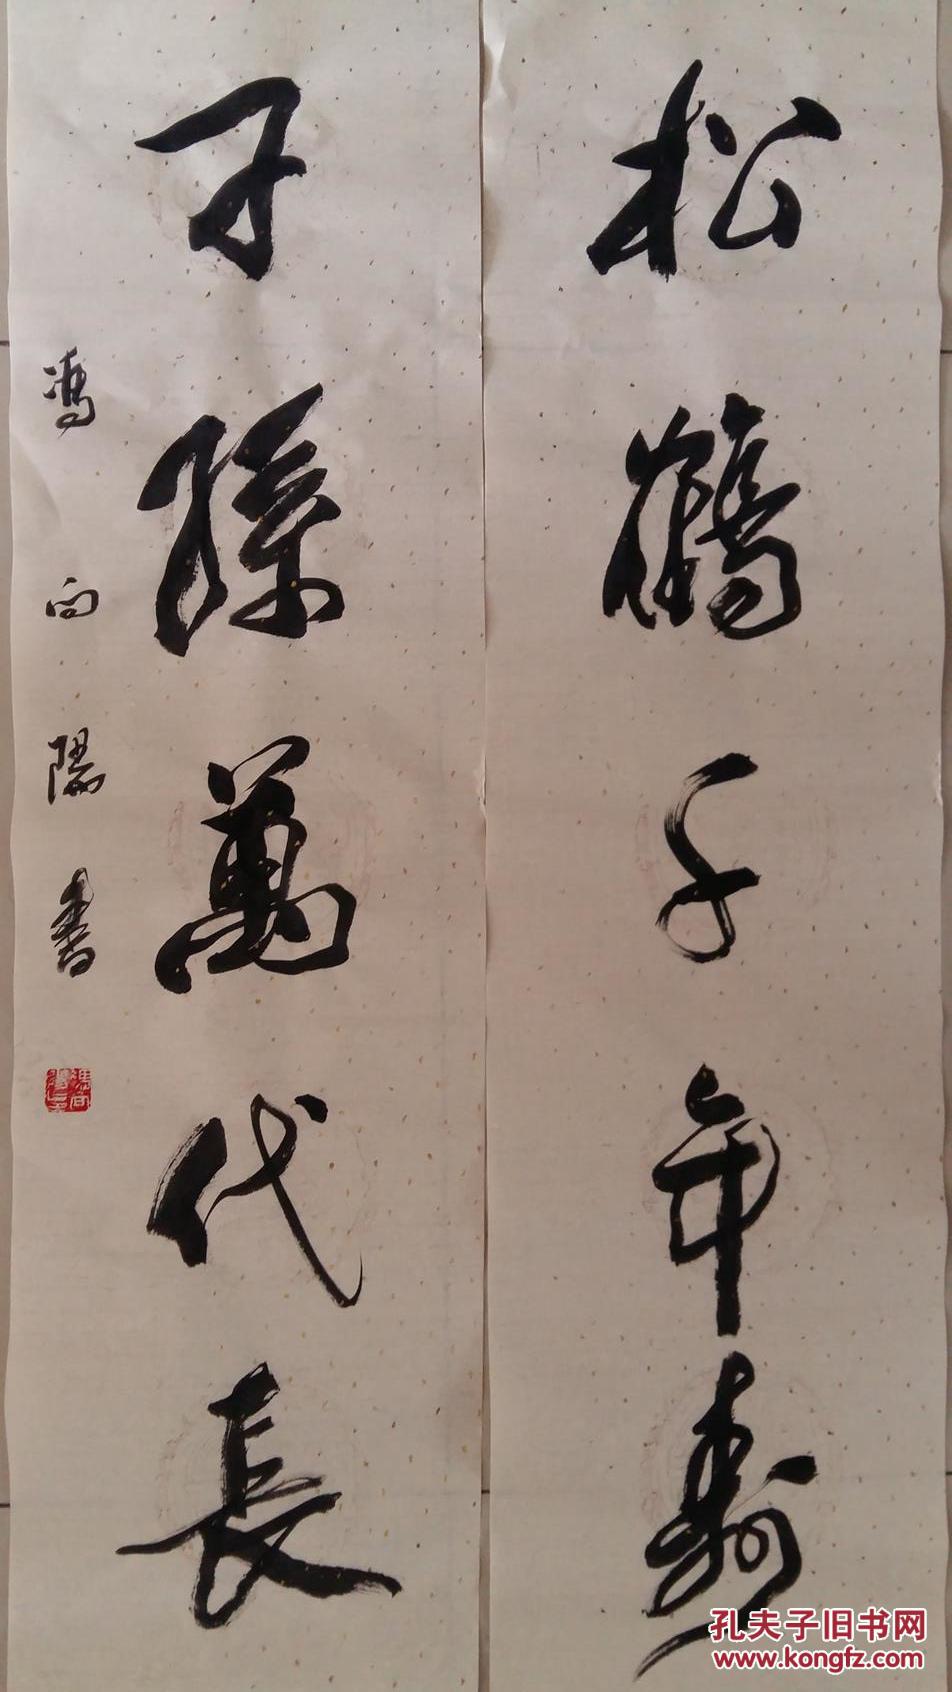 松鶴千年壽
子孫萬代長
馮向陽書
孔夫子旧书网
www.kongfz.com